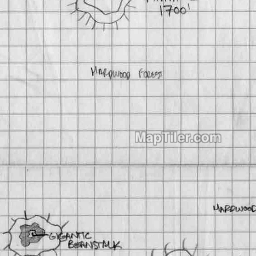 1700'
MARDWOOD FOREST
MapTiler.com
MARDWOOD
GIGANTIC
BEANSTALK